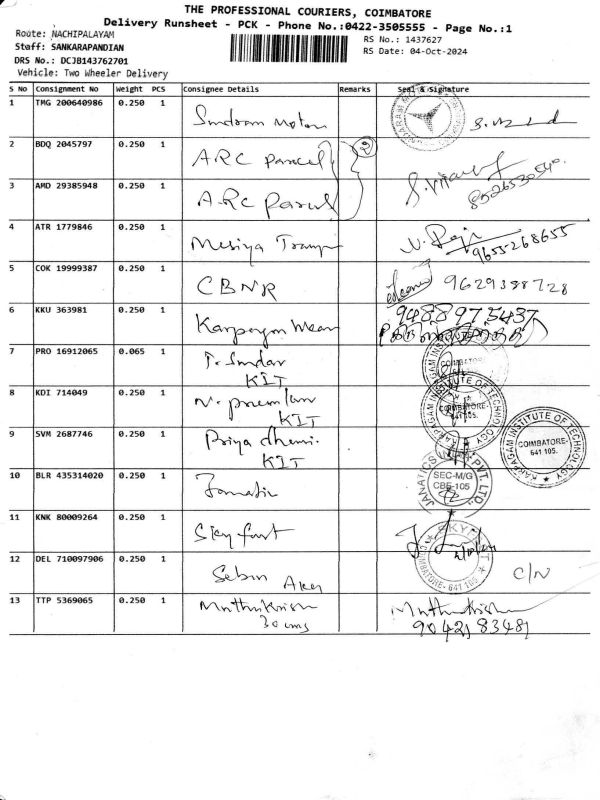 THE PROFESSIONAL COURIERS, COIMBATORE
Delivery Runsheet - PCK - Phone No.:0422-3505555 - Page No.:1
Route: NACHIPALAYAM
RS No.: 1437627
Staff: SANKARAPANDIAN
RS Date: 04-Oct-2024
DRS No.: DCJB143762701
Vehicle: Two Wheeler Delivery
S No Consignment No Weight PCS Consignee Details Remarks Seal & Signature
1 TMG 200640986 0.250 1
2 BDQ 2045797 0.250 1 ARC Parcel 2
3 AMD 29385948 0.250 1 ARC Parcel
4 ATR 1779846 0.250 1 9655268655
5 COK 19999387 0.250 1 CBNR 9629388728
6 KKU 363981 0.250 1 9488975437
7 PRO 16912065 0.065 1 T. Sundar
KIT
8 KDI 714049 0.250 1
KIT
KARPAGAM INSTITUTE OF TECHNOLOGY COIMBATORE- 641 105.
9 SVM 2687746 0.250 1 Priya
KIT
KARPAGAM INSTITUTE OF TECHNOLOGY COIMBATORE- 641 105.
10 BLR 435314020 0.250 1 JANATICS PVT. LTD., SEC-M/G CBE-105
11 KNK 80009264 0.250 1 Sky fast
COIMBATORE- 641 105
12 DEL 710097906 0.250 1 Sebin C/N
13 TTP 5369065 0.250 1 Muthukrish Muthukrish
904218348